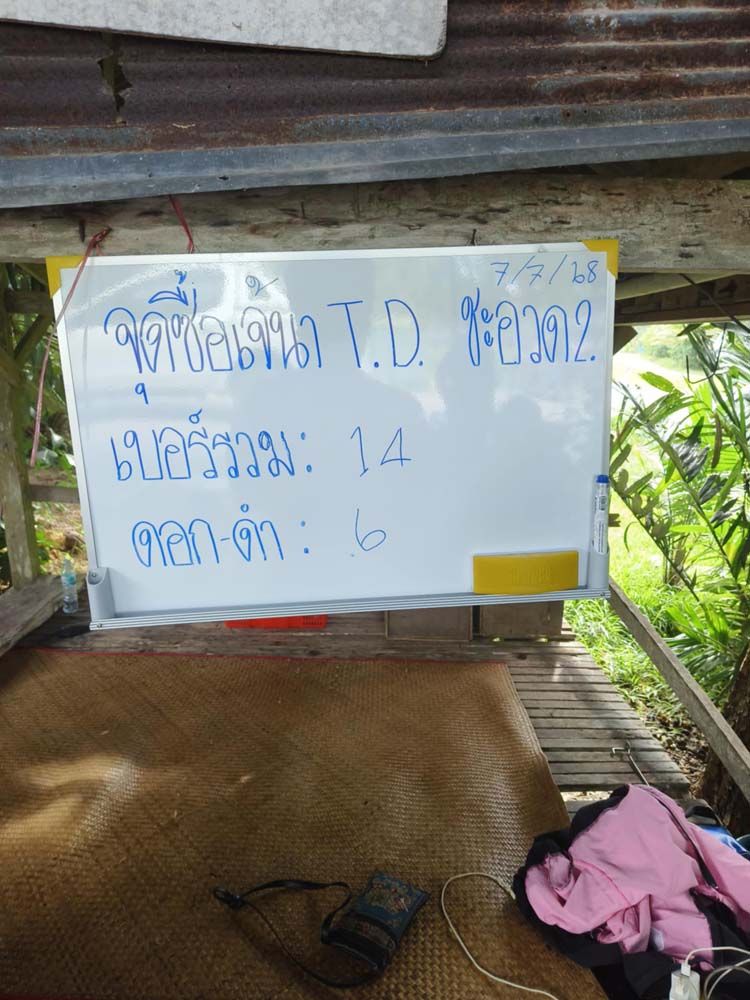 7/7/68
จุดซื้อเจ้นา T.D. ชะอวด2.
เบอร์รวม: 14
ดอก-ดำ: 6